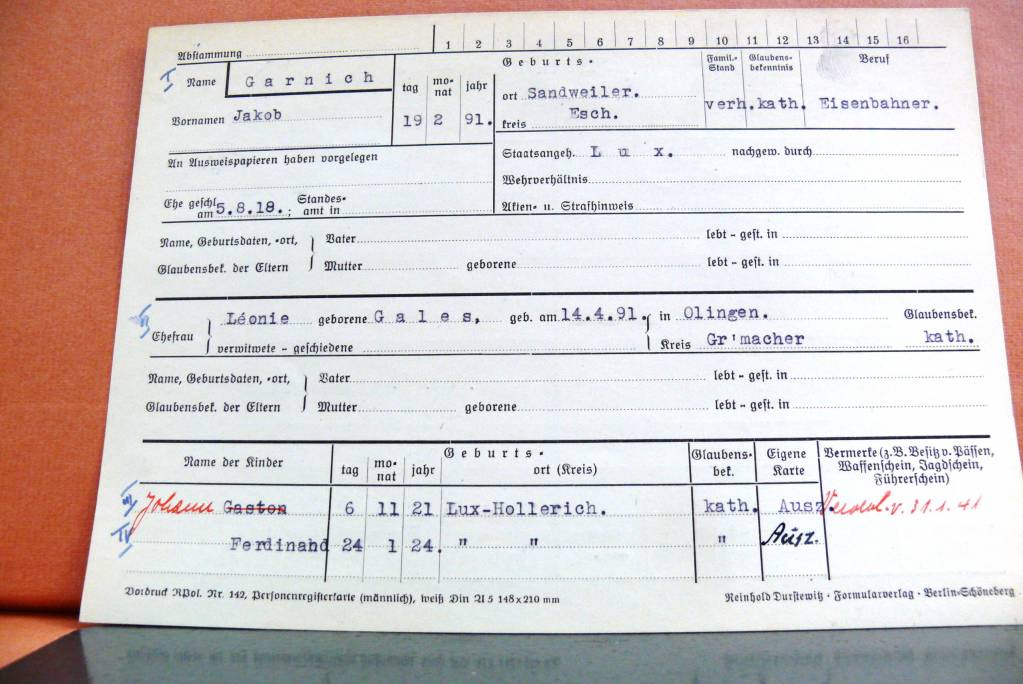 Abstammung 1 2 3 4 5 6 7 8 9 10 11 12 13 14 15 16
I Name Garnich tag monat jahr Geburts- Famil.-Stand Glaubensbekenntnis Beruf
Vornamen Jakob 19 2 91. ort Sandweiler. verh. kath. Eisenbahner.
kreis Esch.
An Ausweispapieren haben vorgelegen Staatsangeh. Lux. nachgew. durch
Wehrverhältnis
Ehe geschl. am 5.8.18.; Standesamt in Akten- u. Strafhinweis
Name, Geburtsdaten, -ort, Vater lebt - gest. in
Glaubensbek. der Eltern Mutter geborene lebt - gest. in
Ehefrau Léonie geborene Gales, geb. am 14.4.91. in Olingen. Glaubensbek.
verwitwete - geschiedene Kreis Gr'macher kath.
Name, Geburtsdaten, -ort, Vater lebt - gest. in
Glaubensbek. der Eltern Mutter geborene lebt - gest. in
Name der Kinder tag monat jahr Geburts- ort (Kreis) Glaubensbek. Eigene Karte Vermerke (z.B. Besitz v. Pässen, Waffenschein, Jagdschein, Führerschein)
Johann Gaston 6 11 21 Lux-Hollerich. kath. Ausz. v. 31.1.41
IV Ferdinand 24 1 24. " " " Ausz.
Vordruck RPol. Nr. 142, Personenregisterkarte (männlich), weiß Din A5 148x210 mm Reinhold Durstewitz · Formularverlag · Berlin-Schöneberg